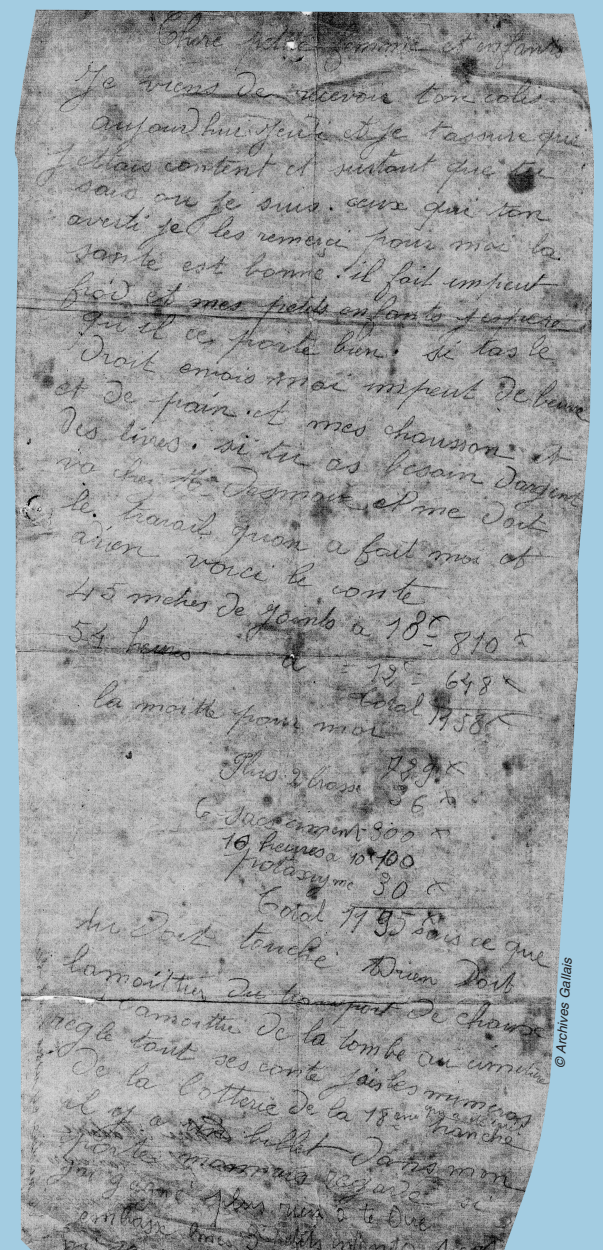 Chere petite femme et enfants
Je viens de recevoir ton colis
aujourdhui Jeudi et je tassure que
jettais content et surtout que tu
sais ou je suis. ceux qui ton
averti je les remerci pour moi la
santé est bonne. il fait impeut
froid et mes petits enfants jespere
qu'il ce porte bien. si tas le
Droit envois moi impeut de beure
et de pain et mes chausson et
des livres. si tu as besoin dargent
va chez Mr et me doit
le travail quon a fait moi et
voici le conte
45 metres de joints a 18 F 810 F
54 heures a = 12 F = 648 F
total 1458 F
la moitte pour moi
729 F
Plus 2 36 F
6 sac ciment 300 F
10 heures a 10 F 100
30 F
Total 1195 F sais ce que
tu Doit touché Drien Doit
lamoittier du transport de chaux
lamoittie de la tombe au cimetiere
regle tout ses conte fais les numeros
De la lotterie de la 18 eme tranche
il y a billet dans mon
porte monnaie regarde si
jai gagné plus rien a te Dire
embrasse mes 2 petits enfants
© Archives Gallais